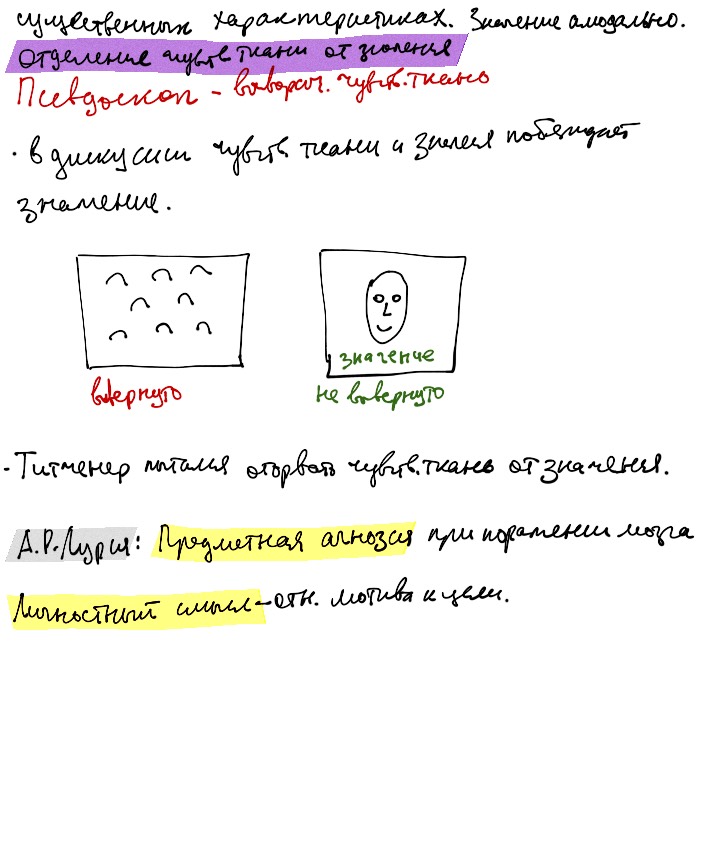 существенных характеристиках. Значение амодально.
Отделение чувств ткани от значения
Псевдоскоп - выворач. чувств. ткань
· В дискуссии чувств ткани и значения побеждает
значение.
значение
вывернуто
не вывернуто
- Титченер пытался оторвать чувств. ткань от значения.
А.Р. Лурия: Предметная агнозия при поражении мозга
Личностный смысл - отн. мотива к цели.